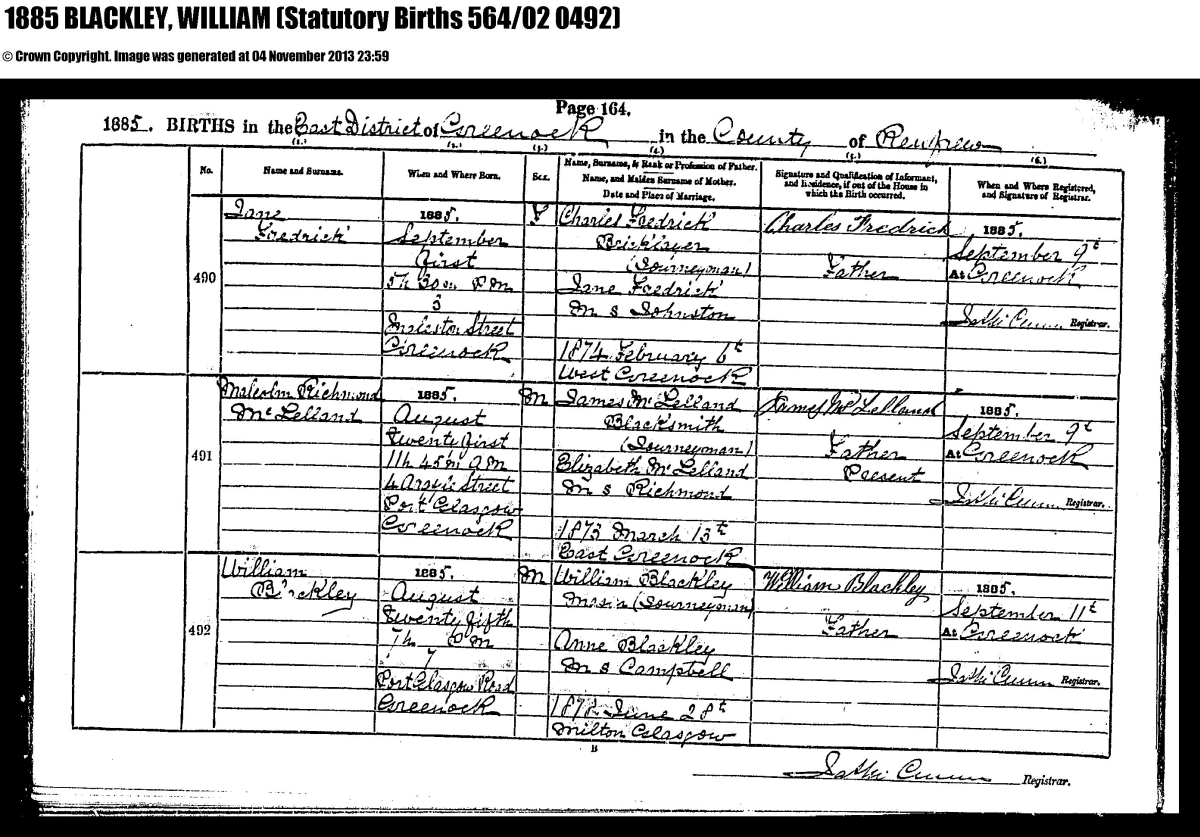 1885 BLACKLEY, WILLIAM (Statutory Births 564/02 0492)
© Crown Copyright. Image was generated at 04 November 2013 23:59
Page 164.
1885. BIRTHS in the East District of Greenock in the County of Renfrew
(1.) (2.) (3.) (4.) (5.) (6.)
No.
Name and Surname.
When and Where Born.
Sex.
Name, Surname, & Rank or Profession of Father.
Name, and Maiden Surname of Mother.
Date and Place of Marriage.
Signature and Qualification of Informant,
and Residence, if out of the House in
which the Birth occurred.
When and Where Registered,
and Signature of Registrar.
490
Jane
Fredrick
1885.
September
First
5h 30m P M
3
Street
Greenock
F
Charles Fredrick
Bricklayer
(Journeyman)
Jane Fredrick
M S Johnston
1874 February 6th
West Greenock
Charles Fredrick
Father
1885.
September 9th
At Greenock
Registrar.
491
Malcolm Richmond
McLelland
1885.
August
Twenty first
11h 45m A M
4 Argyle Street
Port Glasgow
Greenock
M
James McLelland
Blacksmith
(Journeyman)
Elizabeth McLelland
M S Richmond
1873 March 13th
East Greenock
James McLelland
Father
Present
1885.
September 9th
At Greenock
Registrar.
492
William
Blackley
1885.
August
Twenty fifth
7h P M
7
Port Glasgow Road
Greenock
M
William Blackley
Mason (Journeyman)
Anne Blackley
M S Campbell
1878 June 28th
Milton Glasgow
William Blackley
Father
1885.
September 11th
At Greenock
Registrar.
B
Registrar.